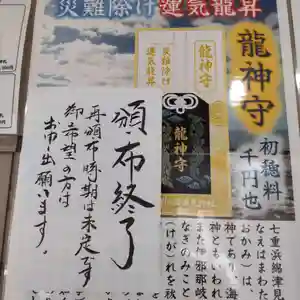 災難除け運気龍昇
龍神守
初穂料
千円也
龍神守
災難除け
運気龍昇
龍神守
頒布終了
再頒布時期は未定です
御希望の方は
お申し出願います。
七重浜綿津見
なえはまわた
おかみ)は、
神であり、海
神ともいわれ
また伊邪那岐
なぎのみこと
(けが)れを